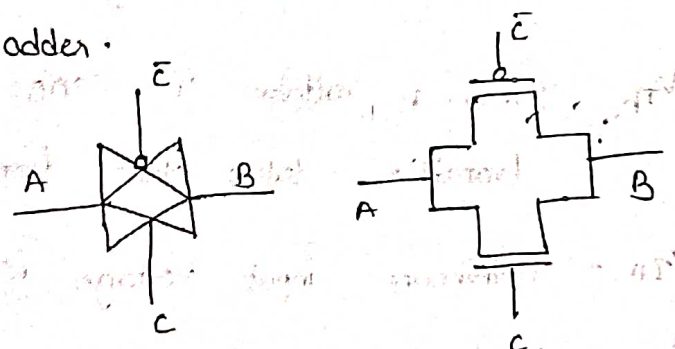 adder.
C̅
A
B
C
C̅
A
B
C